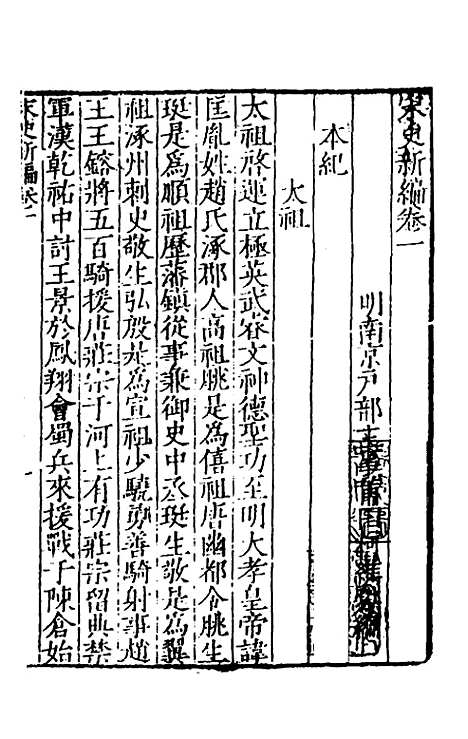 宋史新編卷一
明南京戶部主事
本紀
太祖
太祖啓運立極英武睿文神德聖功至明大孝皇帝諱
匡胤姓趙氏涿郡人高祖朓是為僖祖唐幽都令朓生
珽是為順祖歷藩鎮從事兼御史中丞珽生敬是為翼
祖涿州刺史敬生弘殷是為宣祖少驍勇善騎射事趙
王王鎔將五百騎援唐莊宗于河上有功莊宗留典禁
軍漢乾祐中討王景於鳳翔會蜀兵來援戰于陳倉始
宋史新編卷一